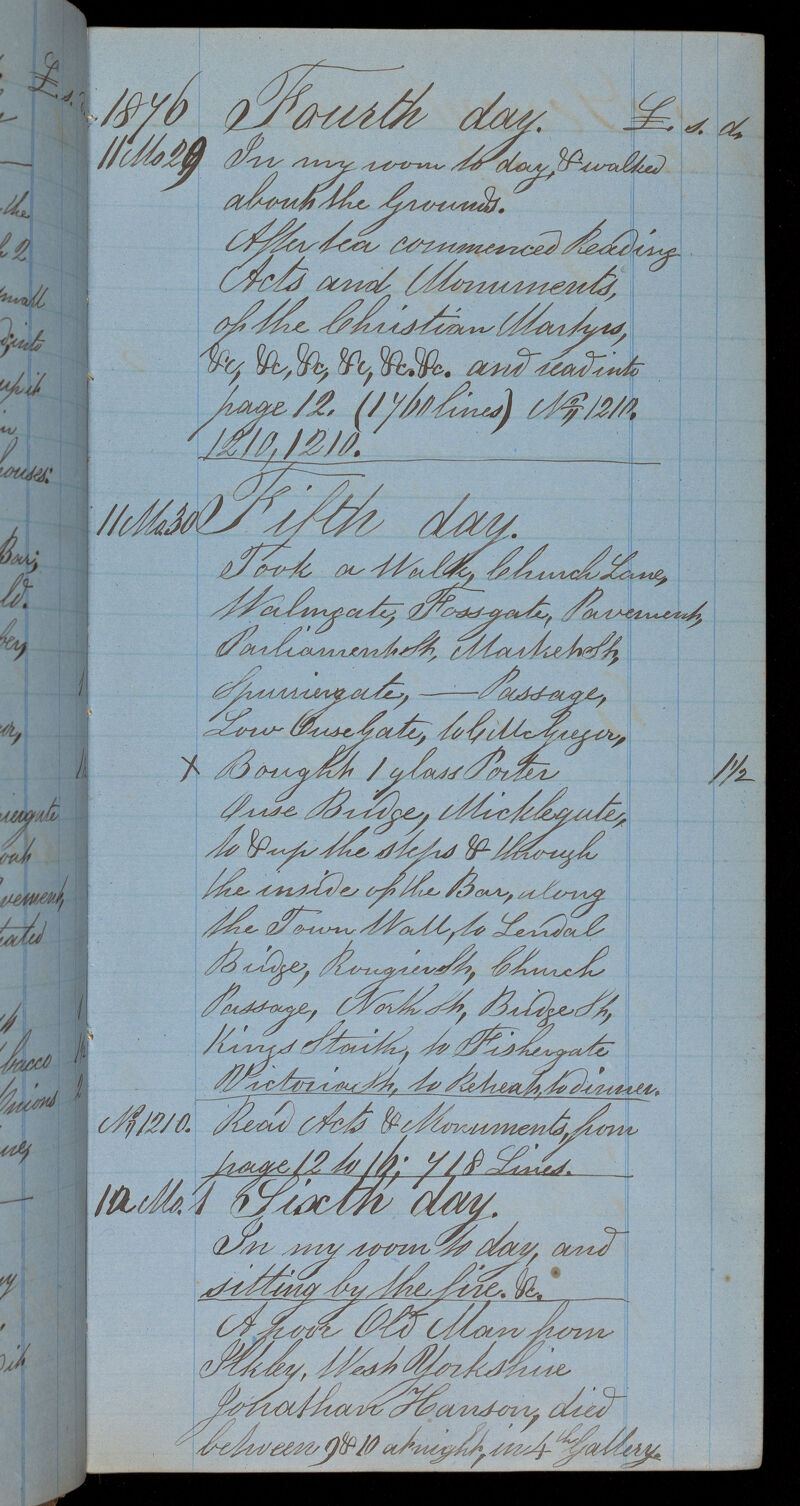 £. s. d.
1876 Fourth day. £. s. d.
11 Mo 29 In my room to day, & walked
about the Grounds.
After tea commenced Reading
Acts and Monuments,
of the Christian Martyrs,
&c, &c, &c, &c, &c. &c. and read into
page 12. (1760 lines) No. 1210.
1210, 1210.
11 Mo. 30 Fifth day.
Took a Walk, Church Lane,
Walmgate, Fossgate, Pavement,
Parliament St, Market St,
Spurriergate, — Passage,
Low Ouse Gate, to G. McGregor,
X Bought 1 glass Porter 1½
Ouse Bridge, Micklegate,
to & up the steps & through
the inside of the Bar, along
the Town Wall, to Lendal
Bridge, Rougier St, Church
Passage, North St, Bridge St,
Kings Staith, to Fishergate
Victoria St, to Retreat, to dinner.
No 1210. Read Acts & Monuments, from
page 12 to 16; 718 Lines.
12 Mo. 1 Sixth day.
In my room to day, and
sitting by the fire. &c.
A poor Old Man from
Ilkley, West Yorkshire
Jonathan Hanson, died
between 9 & 10 at night, in 4th Gallery.